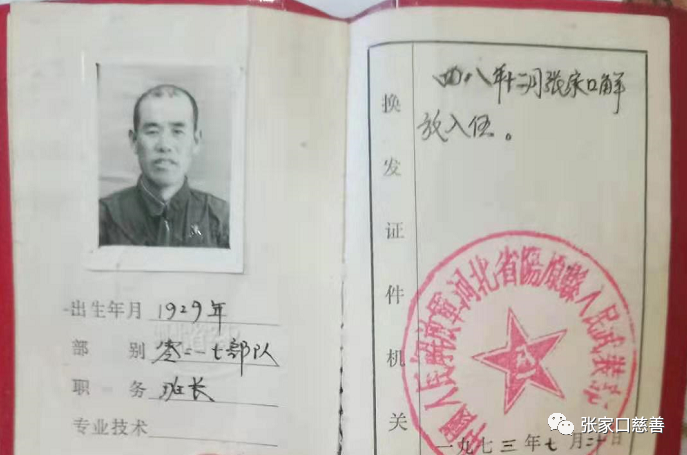 出生年月 1929年
部别 二一七部队
职务 班长
专业技术
换发证件机关
四八年十二月张家口解
放入伍。
中国人民解放军河北省阳原县人民武装部
一九七三年七月二日
张家口慈善